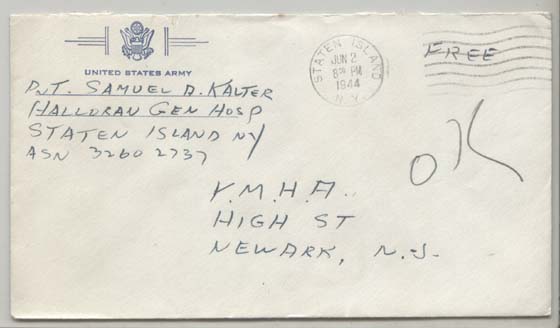 UNITED STATES ARMY
PVT. SAMUEL A. KALTER
HALLORAN GEN HOSP
STATEN ISLAND NY
ASN 32602737
STATEN ISLAND
JUN 2
8 PM
1944
N.Y.
FREE
OK
Y.M.H.A.
HIGH ST
NEWARK, N.J.